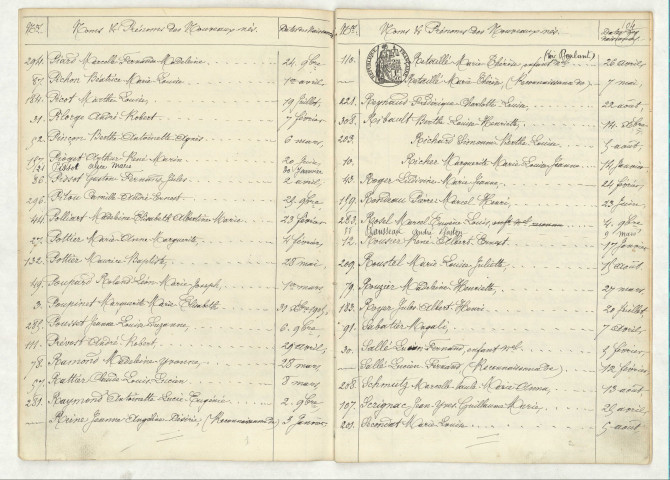 Nos. Noms & Prénoms des Nouveaux-nés. Dates des Naissances
294. Piard Marcelle Fernande Madeleine 24 9bre
57. Pichon Béatrice Marie Louise 10 avril
184. Picot Marthe Louise 19 juillet
31. Plorge André Robert 7 février
52. Pinçon Berthe Antoinette Agnès 6 mars
157. Piquet Arthur René Marie 20 juin
121 Pissot 30 janvier
86. Pissot Gaston Fernand Jules 2 avril
296. Pitou Camille André Ernest 25 9bre
44. Polliart Madeleine Elisabeth Albertine Marie 23 février
27. Pottier Marie Anne Marguerite 4 février
132. Pottier Maurice Baptiste 28 mai
49. Poupard Roland Léon Marie Joseph 10 mars
3. Poupinet Marguerite Marie Elisabeth 31 Xbre
281. Poussot Jeanne Louise Suzanne 6 9bre
111. Prévost André Robert 29 avril
78. Ramond Madeleine Yvonne 28 mars
57. Rattier Claude Louis Lucien 8 mars
281. Raymond Antoinette Lucie Eugénie 2 9bre
Reine Jeanne Angeline Désirée, (Reconnaissance de) 3 janvier
Nos. Noms & Prénoms des Nouveaux-nés. Dates des Naissances
94
(Voir Roulaut)
110. Retaillé Marie Thérèse, enfant nel 26 avril
Retaillé Marie Thérèse, (Reconnaissance de) 7 mai
221. Reynaud Frédérique Charlotte Lucie 22 août
308. Ribault Berthe Louise Henriette 14 Xbre
203. Richard Simonne Berthe Louise 5 août
10. Richer Marguerite Marie Louise Jeanne 14 janvier
43. Roger Ludivine Marie Jeanne 24 février
159. Rondeau Pierre Marcel Henri 23 juin
283. Rosel Marcel Eugène Louis, 4 9bre
Rousseau André 9 mai
12. Roussier René Albert Ernest 17 janvier
209. Roustel Marie Louise Juliette 15 août
79. Rouzier Madeleine Henriette 27 mars
183. Royer Jules Albert Henri 20 juillet
91. Sabatier Magali 7 avril
30. Sallé Lucien Fernand, enfant nel 5 février
Sallé Lucien Fernand (Reconnaissance de) 12 février
208. Schmultz Marcelle Paule Marie Anna 13 août
107. Scrignac Jean Yves Guillaume Marie 25 avril
201. Secment Marie Louise 5 août